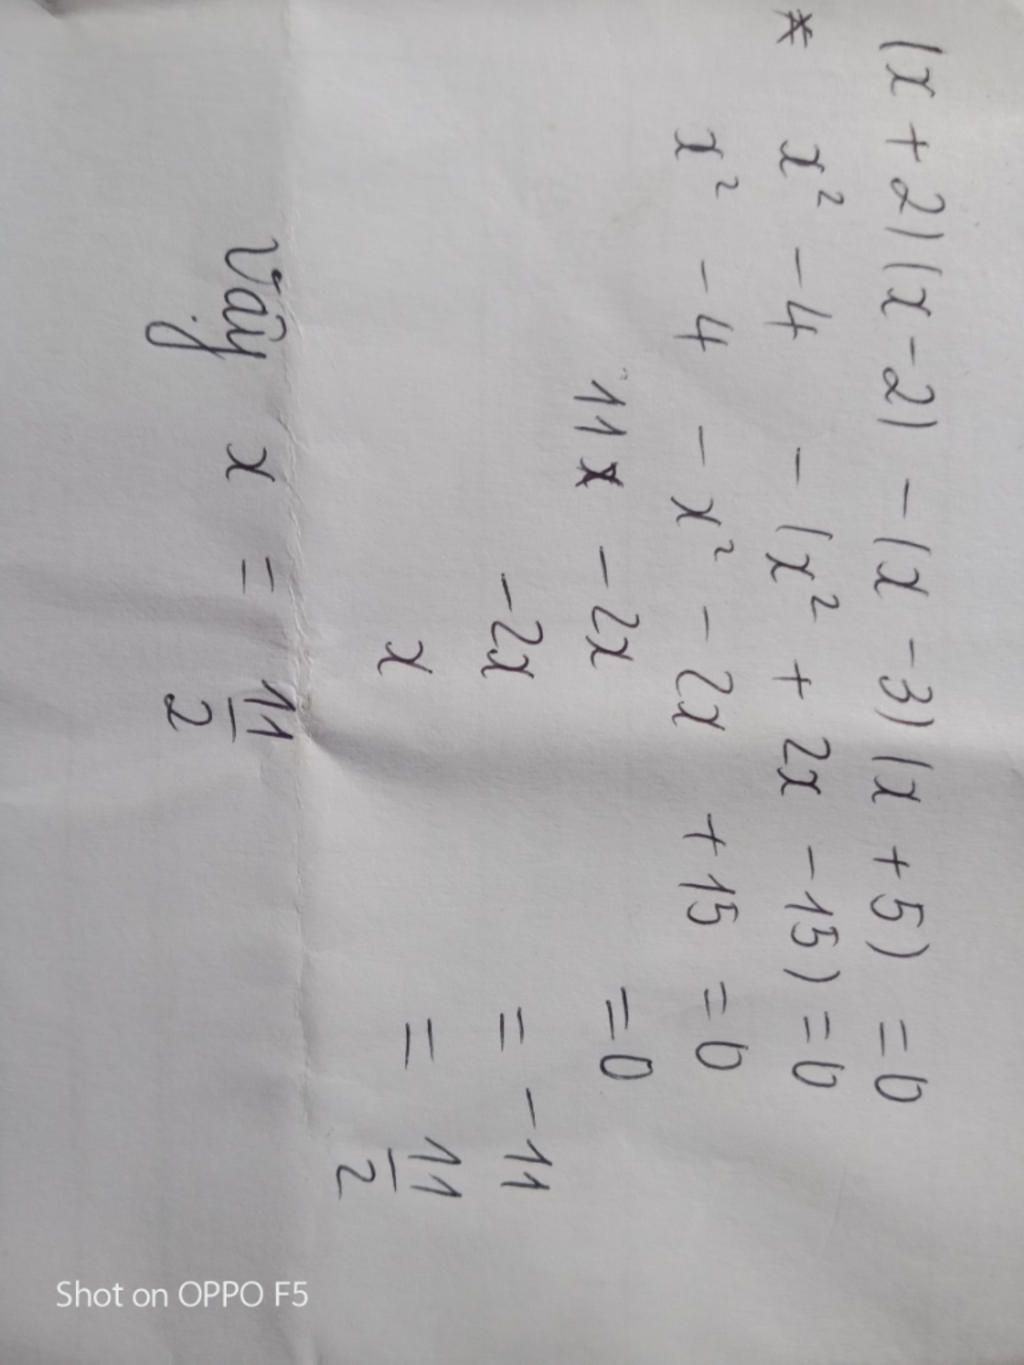 (x + 2)(x - 2) - (x - 3)(x + 5) = 0
* x² - 4 - (x² + 2x - 15) = 0
x² - 4 - x² - 2x + 15 = 0
11 - 2x = 0
-2x = -11
x = 11/2
Vậy x = 11/2
Shot on OPPO F5